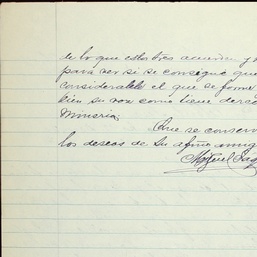 de lo que estos tres
para ver si se consegue que
considerable el que se forme
bien su voz como tiene
Mineria.
Que se conserv
los deseos de Su afmo. amig
Miguel